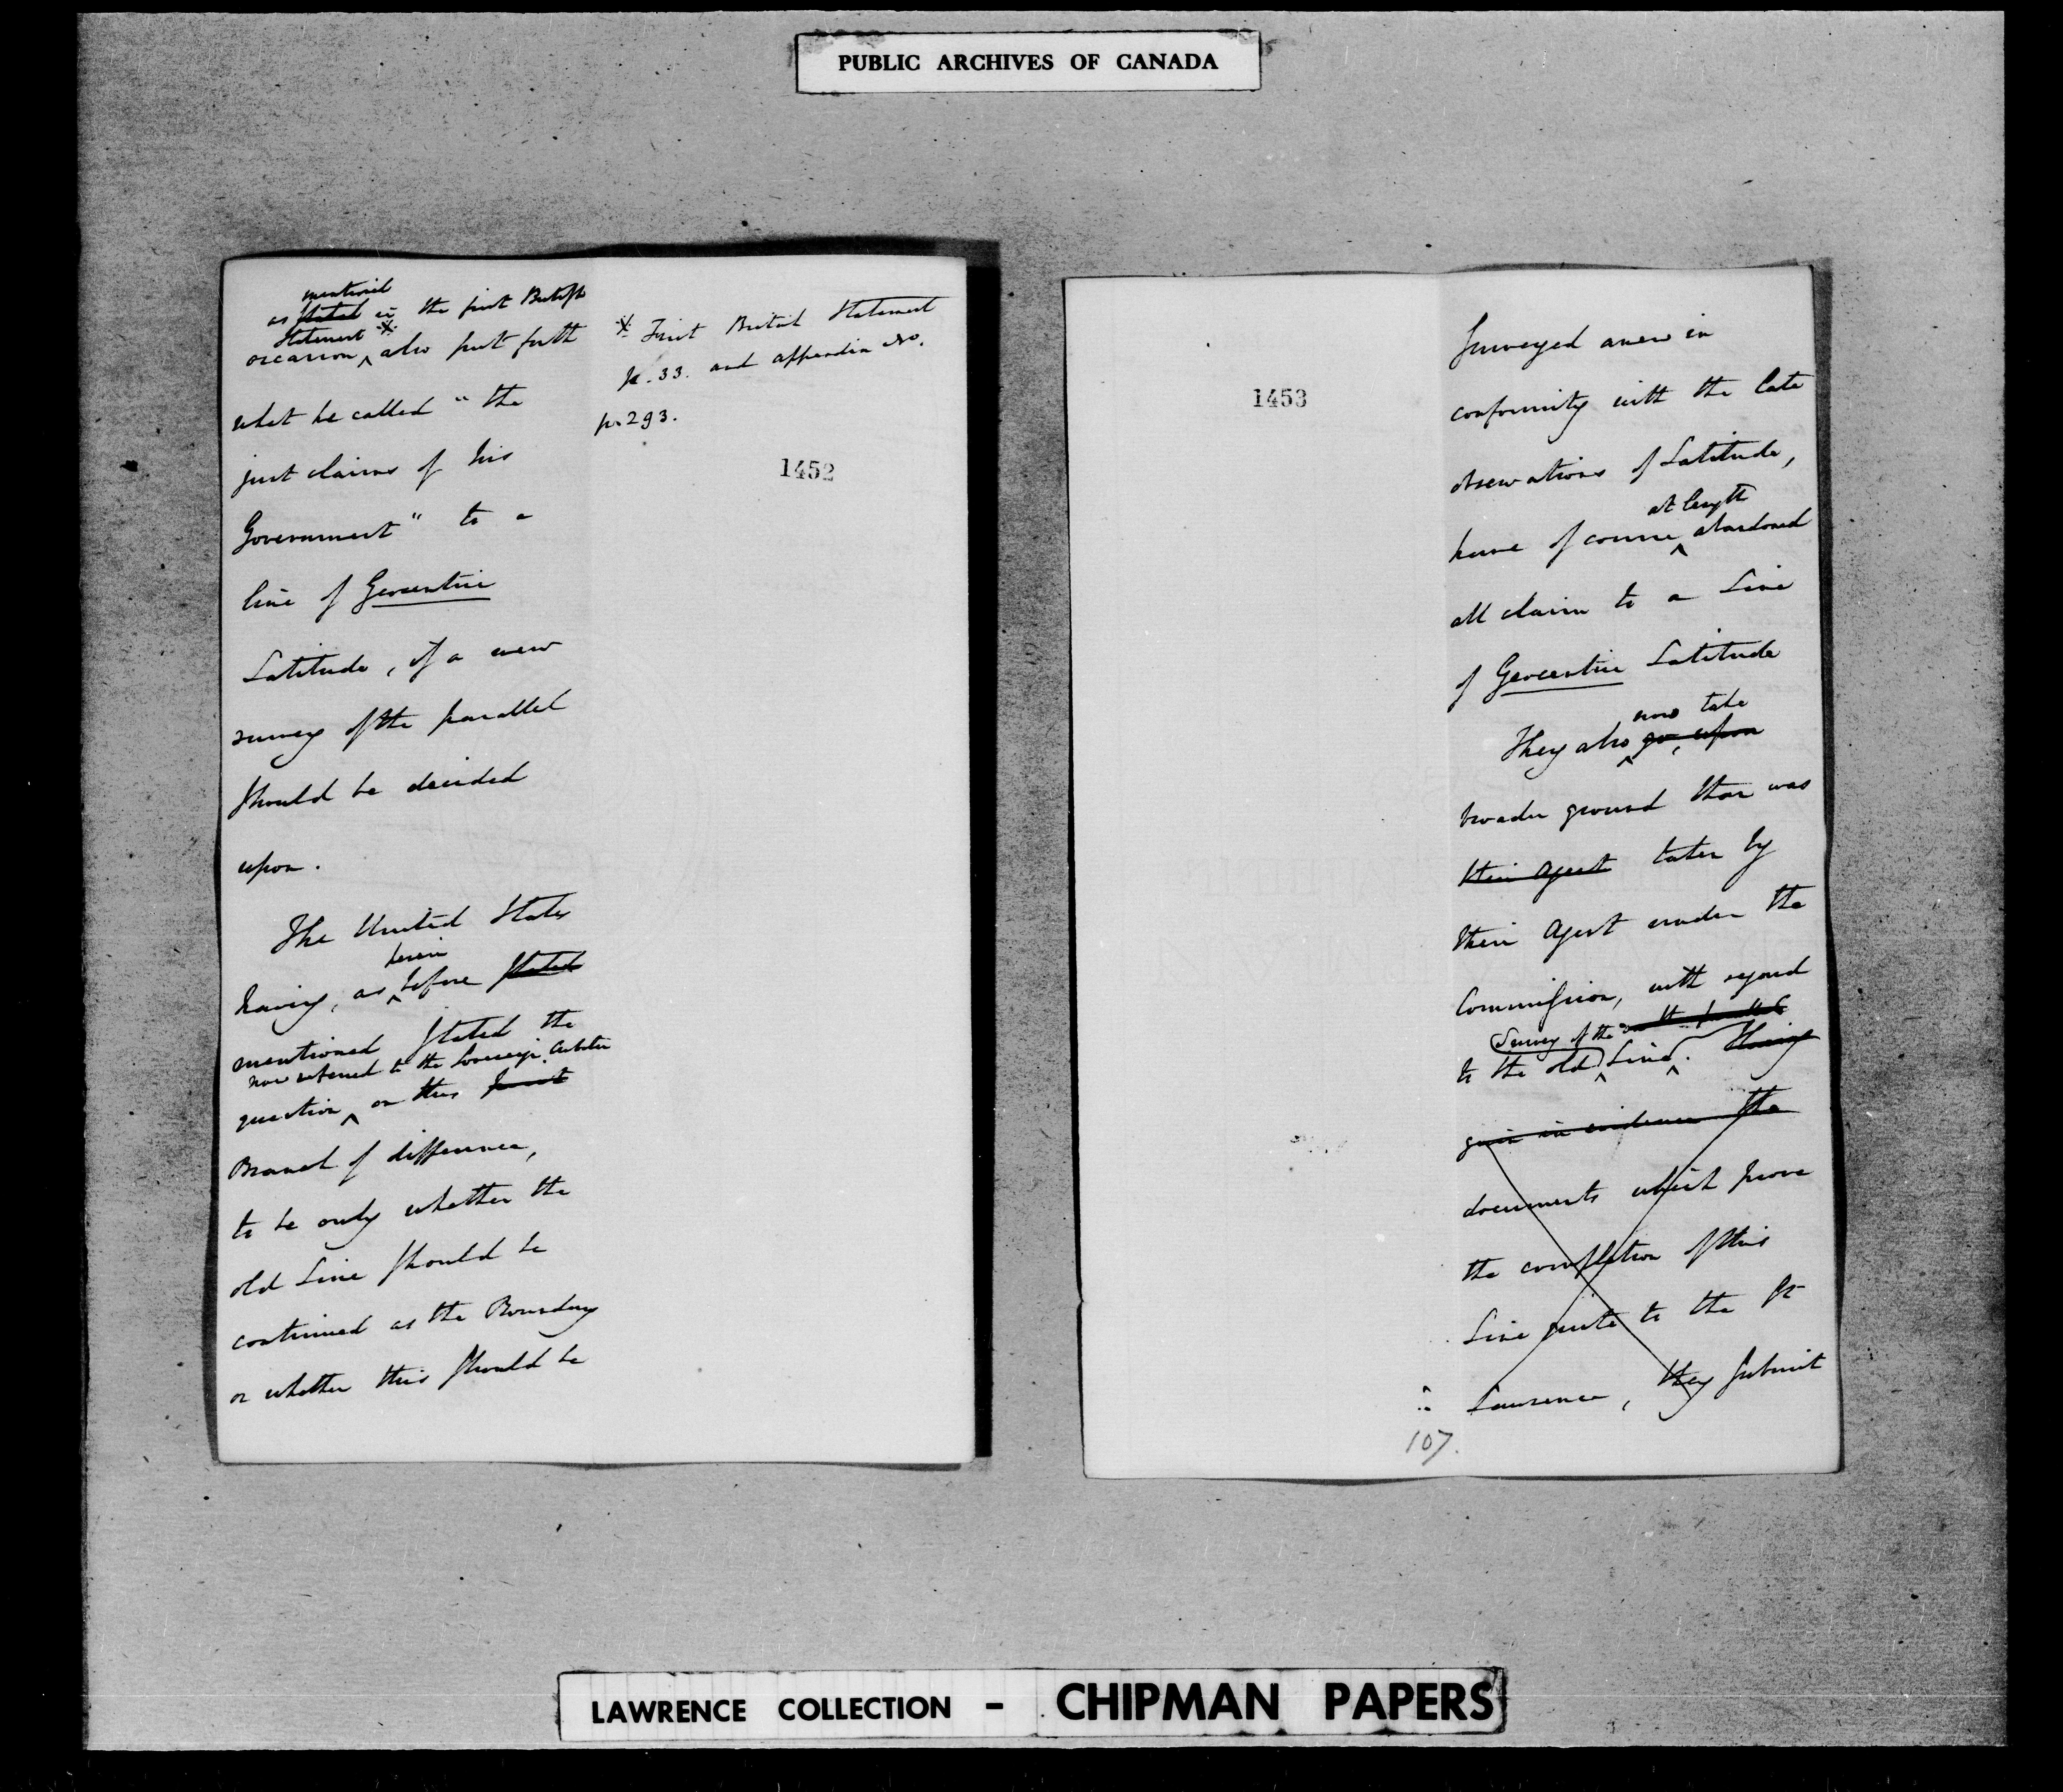 PUBLIC ARCHIVES OF CANADA
mentioned
as stated in the first British
Statement *
occasion ^ also put forth
what he called "the
just claims of his
Government" to a
line of Geocentric
Latitude, if a new
survey of the parallel
should be decided
upon.
The United States
herein
having, as ^ before stated
mentioned stated the
now referred to the Sovereign Arbiter
question ^ on this
Branch of difference,
to be only whether the
old Line should be
continued as the Boundary
or whether this should be
* First British Statement
p. 33. and appendix do.
p. 293.
1452
1453
surveyed anew in
conformity with the late
observations of Latitude,
at length
have of course ^ abandoned
all claim to a Line
of Geocentric Latitude
now take
They also ^ go upon
broader ground than was
their Agent taken by
their Agent under the
Commission, with regard
Survey of the
to the old ^ Line ^. Having
given in evidence the
documents which prove
the completion of this
Line quite to the St
Lawrence, they submit
107.
LAWRENCE COLLECTION - CHIPMAN PAPERS